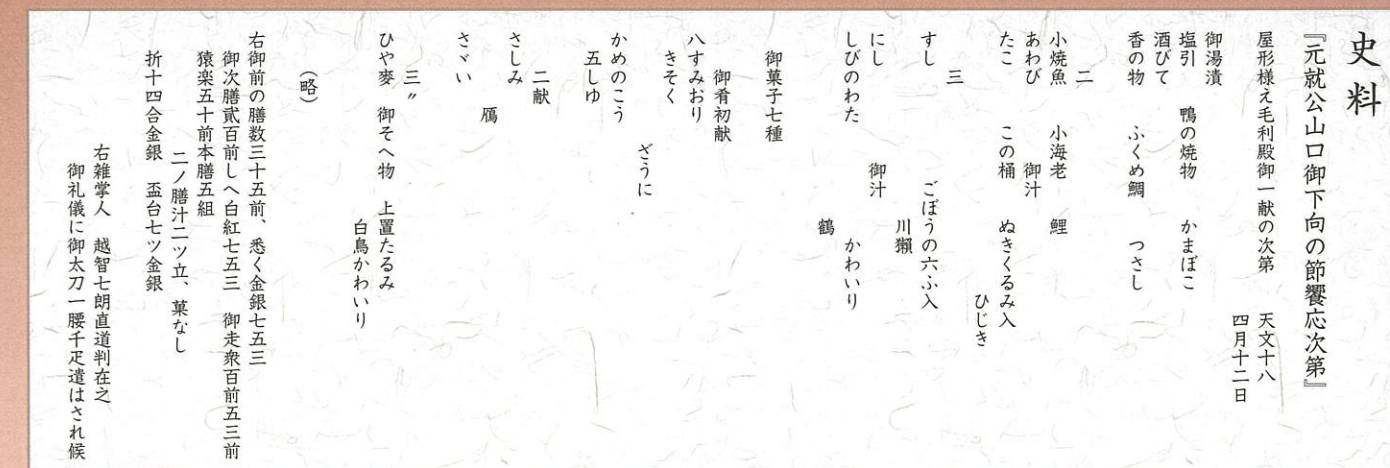 史料
『元就公山口御下向の節饗応次第』
屋形様え毛利殿御一献の次第　天文十八
四月十二日
御湯漬
塩引　鴨の焼物　かまぼこ
酒びて
香の物　ふくめ鯛　つさし
二
小焼魚　小海老　鯉
あわび　御汁
たこ　この桶　ぬきくるみ入
ひじき
三
すし　ごぼうの六ふ入
川獺
にし　御汁
しびのわた　かわいり
鶴
御菓子七種
御肴初献
八すみおり
きそく
ざうに
かめのこう
五しゆ
二献
さしみ
鴈
さゞい
三〃
ひや麥　御そへ物　上置たるみ
白鳥かわいり
（略）
右御前の膳数三十五前、悉く金銀七五三
御次膳貳百前しへ白紅七五三　御走衆百前五三前
猿楽五十前本膳五組
二ノ膳汁二ツ立、菓なし
折十四合金銀　盃台七ツ金銀
右雑掌人　越智七朗直道判在之
御礼儀に御太刀一腰千疋遣はされ候